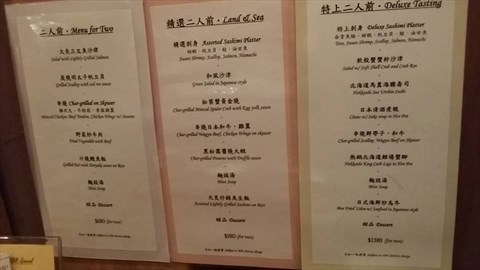 二人前 · Menu for Two
火炙三文魚沙律
Salad with Lightly Grilled Salmon
Grilled Scallop with
串燒 Char-grilled on Skewer
Minced Chicken, Beef Tendon, Chicken Wings
野菜炒牛肉
Fried Vegetable with Beef
汁燒鰻魚飯
Grilled Eel with Teriyaki sauce on Rice
麵豉湯
Miso Soup
甜品 Dessert
$680 (for two)
精選二人前 · Land & Sea
精選刺身 Assorted Sashimi Platter
Sweet Shrimp, Scallop, Salmon, Hamachi
和風沙律
Green Salad in Japanese style
松葉蟹黃金燒
Char-grilled Minced Spider Crab with Egg yolk sauce
串燒日本和牛、雞翼
Char-grilled Wagyu Beef, Chicken Wings on skewer
黑松露醬燒大蝦
Char-grilled Prawns with Truffle sauce
麵豉湯
Miso Soup
Assorted Lightly Grilled Sashimi on Rice
甜品 Dessert
$980 (for two)
特上二人前 · Deluxe Tasting
特上刺身 Deluxe Sashimi Platter
Toro, Sweet Shrimp, Scallop, Salmon, Hamachi
軟殼蟹蟹籽沙律
Salad w/ Soft Shell Crab and Crab Roe
北海道馬糞海膽壽司
Hokkaido Sea Urchin Sushi
日本清酒煮蜆
Clams w/ Sake soup in Hot Pot
串燒鮮帶子、和牛
Char-grilled Scallop, Wagyu Beef on Skewer
Hokkaido King Crab Legs in Hot Pot
麵豉湯
Miso Soup
日式海鮮炒烏冬
Pan Fried Udon w/ Seafood in Japanese style
甜品 Dessert
$1380 (for two)